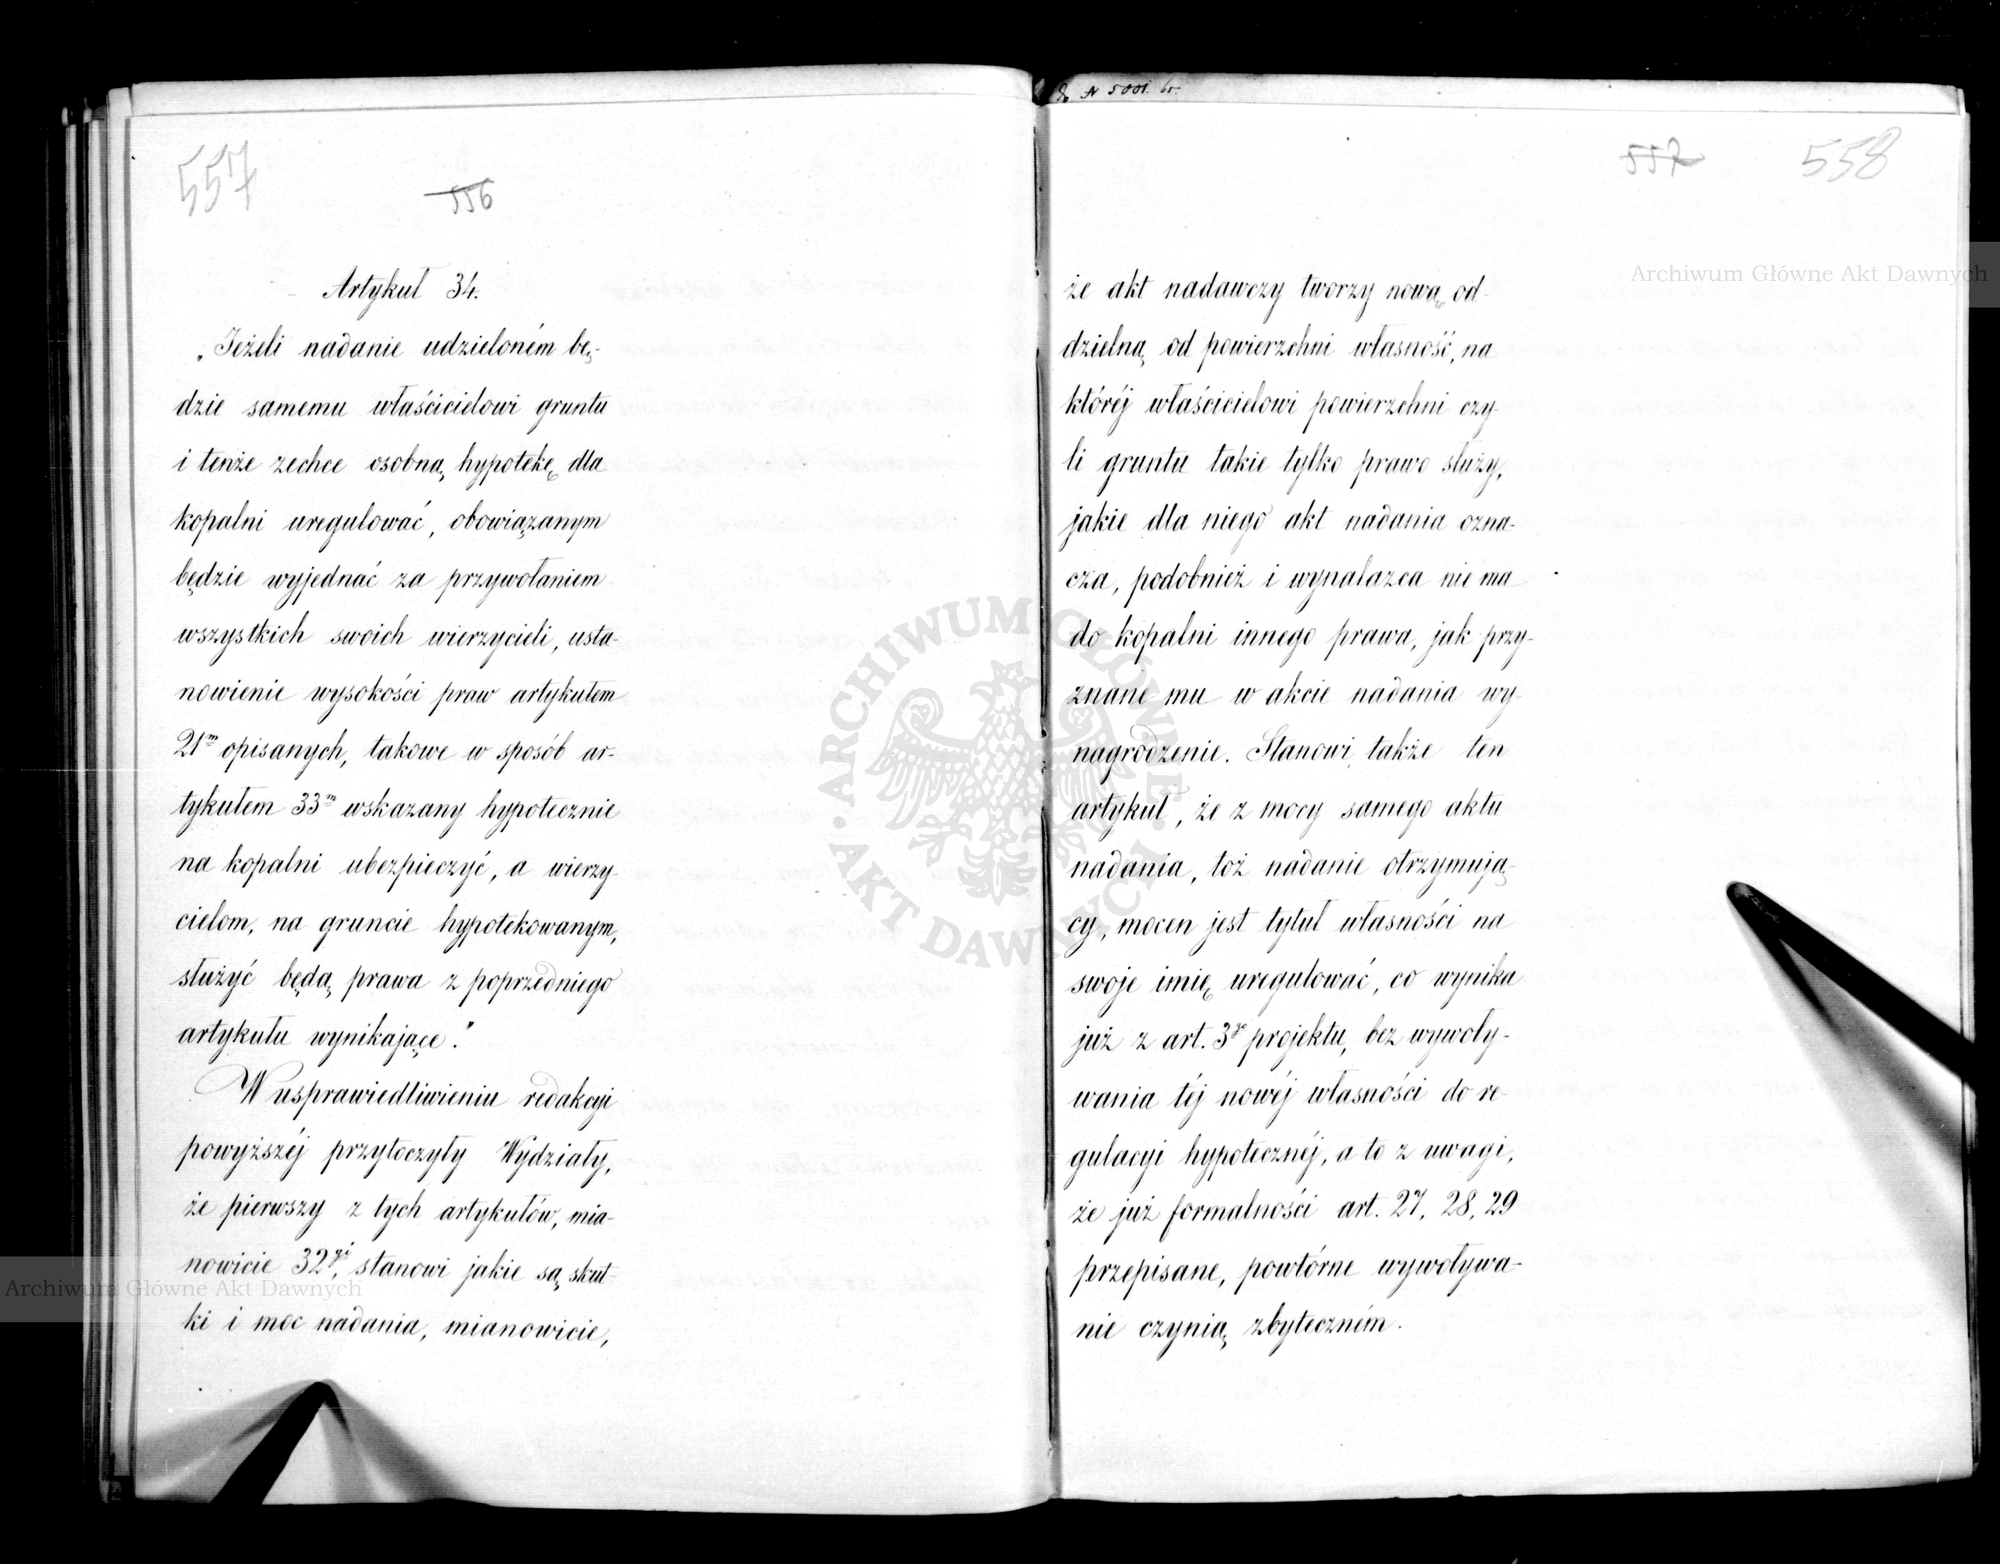 557
556
Artykuł 34.
„Jeżeli nadanie udzieloném bę-
dzie samemu właścicielowi gruntu
i tenże zechce osobną hypotekę dla
kopalni uregulować, obowiązanym
będzie wyjednać za przywołaniem
wszystkich swoich wierzycieli, usta-
nowienie wysokości praw artykułem
21m opisanych, takowe w sposób ar-
tykułem 33m wskazany hypotecznie
na kopalni ubezpieczyć, a wierzy-
cielom, na gruncie hypotekowanym,
służyć będą prawa z poprzedniego
artykułu wynikające."
W usprawiedliwieniu redakcyi
powyższéj przytoczyły Wydziały,
że pierwszy z tych artykułów, mia-
nowicie 32gi, stanowi jakie są skut-
ki i moc nadania, mianowicie,
N 5001. br.
557
558
że akt nadawczy tworzy nową od-
dzielną od powierzchni własność, na
któréj właścicielowi powierzchni czy-
li gruntu takie tylko prawo służy,
jakie dla niego akt nadania ozna-
cza, podobnież i wynalazca nie ma
do kopalni innego prawa, jak przy-
znane mu w akcie nadania wy-
nagrodzenie. Stanowi także ten
artykuł, że z mocy samego aktu
nadania, toż nadanie otrzymują-
cy, mocen jest tytuł własności na
swoje imię uregulować, co wynika
już z art. 3go projektu, bez wywoły-
wania téj nowéj własności do re-
gulacyi hypotecznéj, a to z uwagi,
że już formalności art. 27, 28, 29
przepisane, powtórne wywoływa-
nie czynią zbyteczném.
Archiwum Główne Akt Dawnych
ARCHIWUM GŁÓWNE · AKT DAWNYCH ·
Archiwum Główne Akt Dawnych